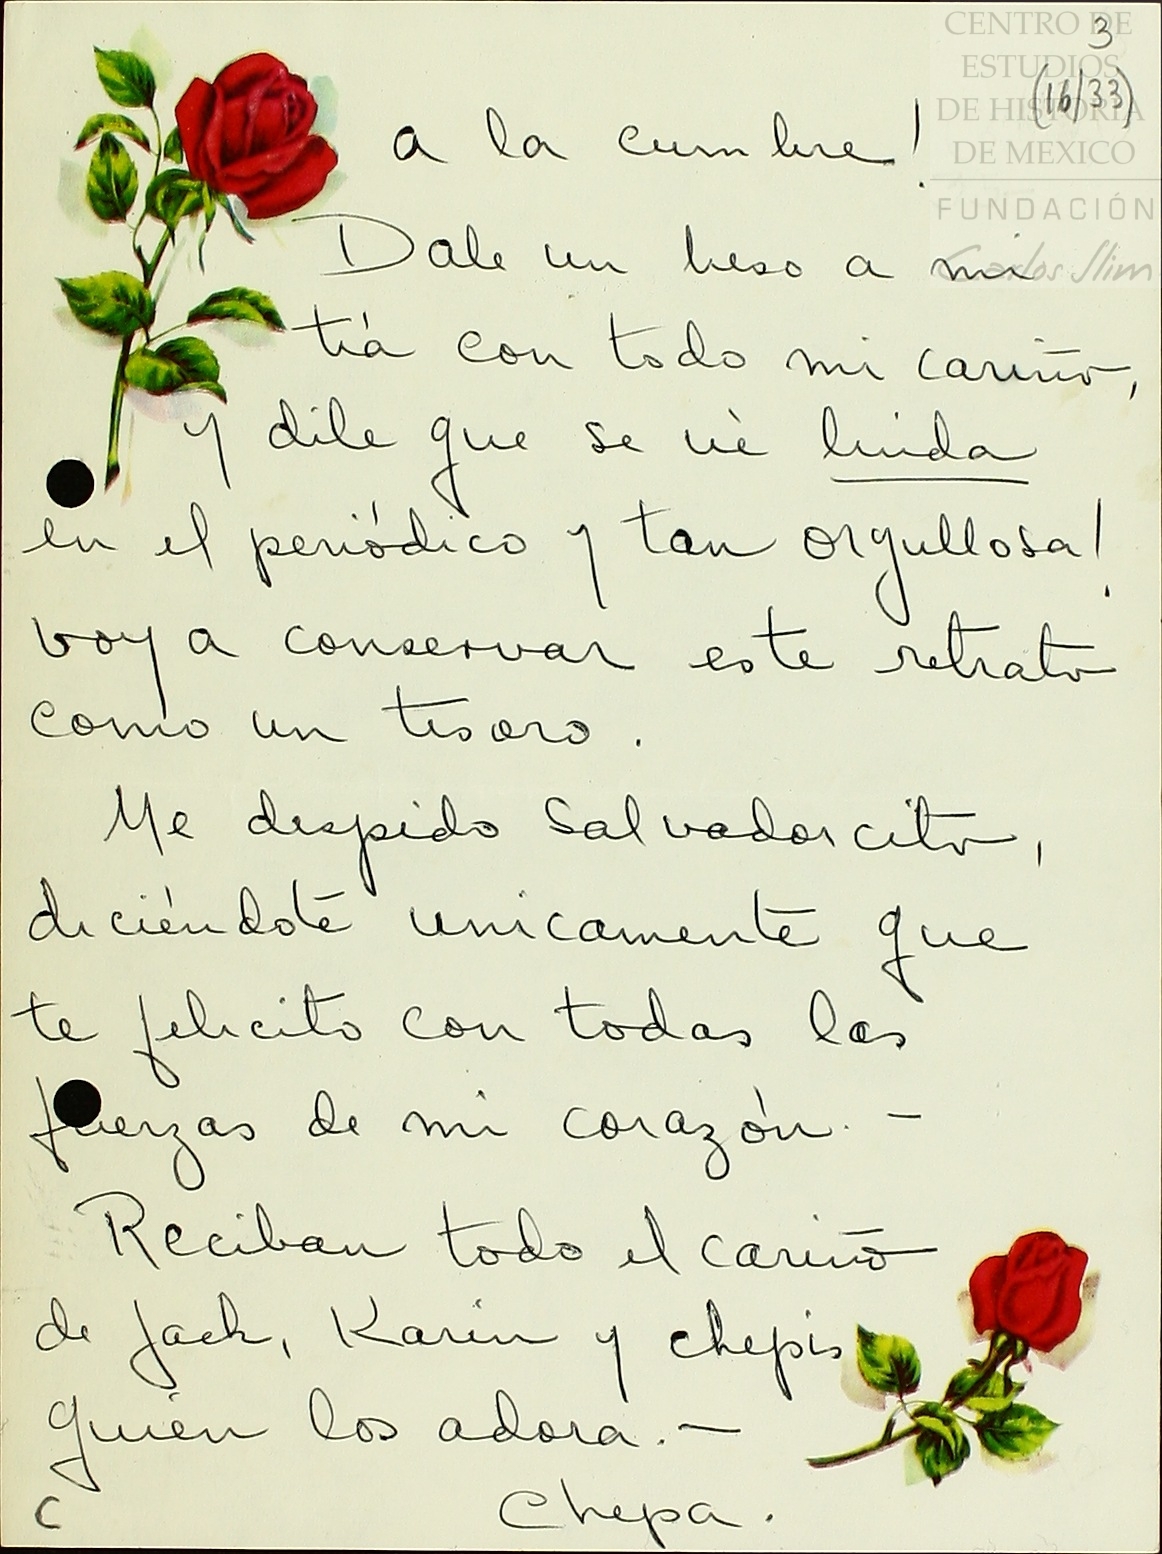 CENTRO DE
ESTUDIOS
DE HISTORIA
DE MEXICO
FUNDACIÓN
Carlos Slim
3
(16/33)
a la cumbre!
Dale un beso a mi
tía con todo mi cariño,
y dile que se vé linda
en el periódico y tan orgullosa!
voy a conservar este retrato
como un tesoro.
Me despido Salvadorcito,
diciéndote unicamente que
te felicito con todas las
fuerzas de mi corazón. —
Reciban todo el cariño
de Jack, Karin y chepis
quien los adora. —
Chepa.
C